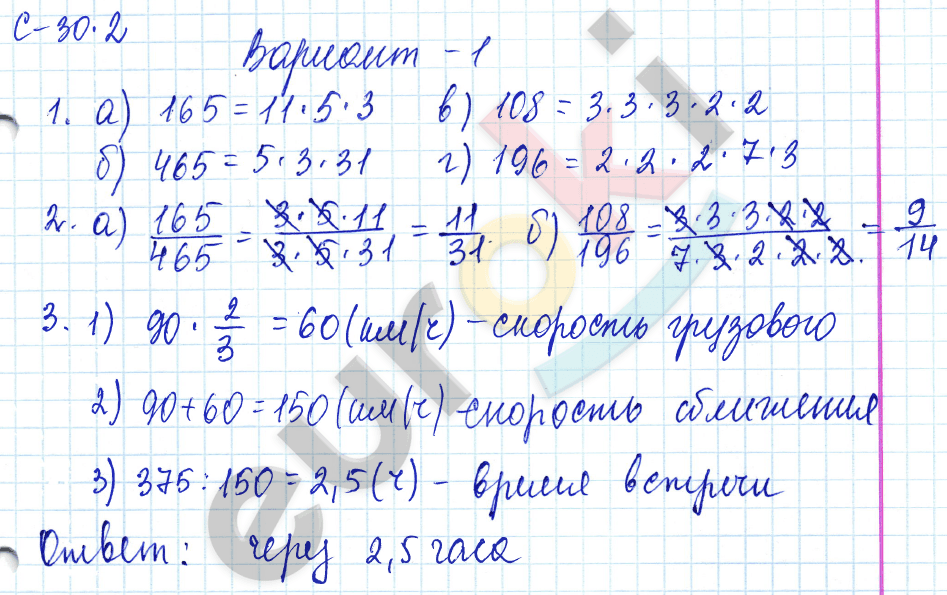 С-30.2
Вариант - 1
1. а) 165 = 11 · 5 · 3 в) 108 = 3 · 3 · 3 · 2 · 2
б) 465 = 5 · 3 · 31 г) 196 = 2 · 2 · 2 · 7 · 3
2. а) 165/465 = 3 · 5 · 11/3 · 5 · 31 = 11/31. б) 108/196 = 3 · 3 · 3 · 2 · 2/7 · 3 · 2 · 2 · 2. = 9/14
3. 1) 90 · 2/3 = 60 (км/ч) - скорость грузового
2) 90 + 60 = 150 (км/ч) - скорость сближения
3) 375 : 150 = 2,5 (ч) - время встречи
Ответ: через 2,5 часа
euroki